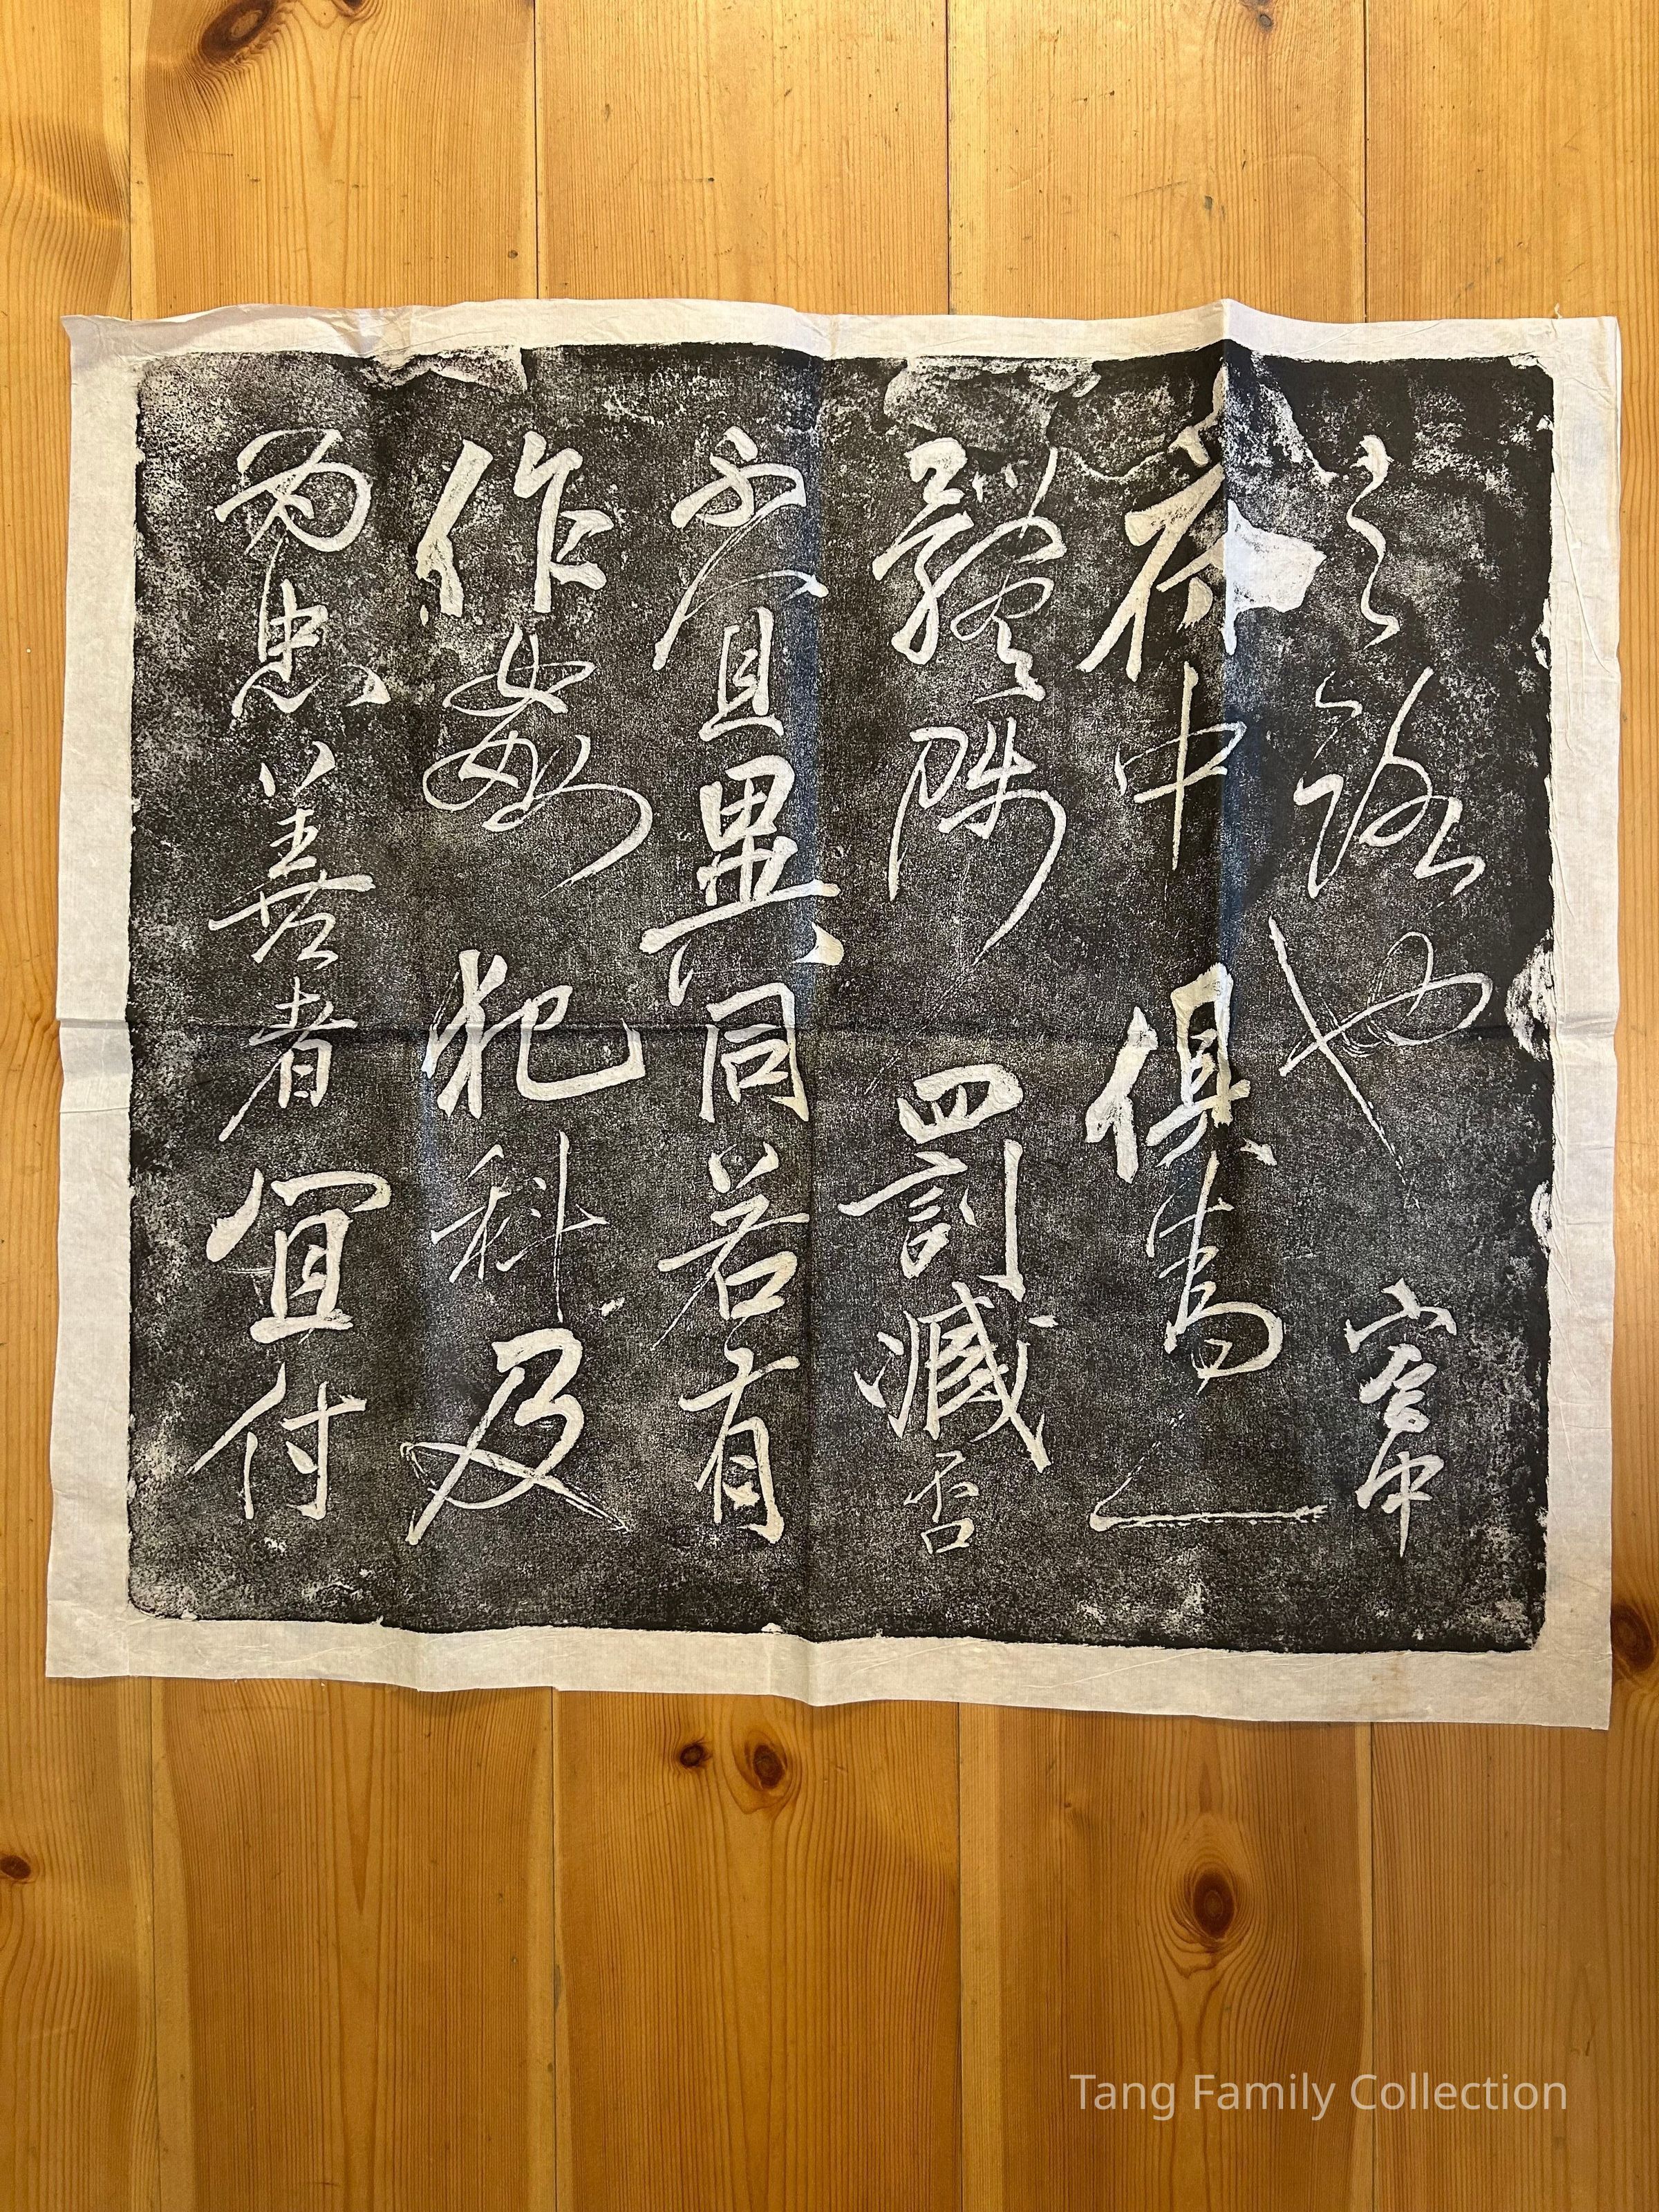 之路也宮中
府中俱為一
體陟罰臧否
不宜異同若有
作姦犯科及
為忠善者宜付
Tang Family Collection